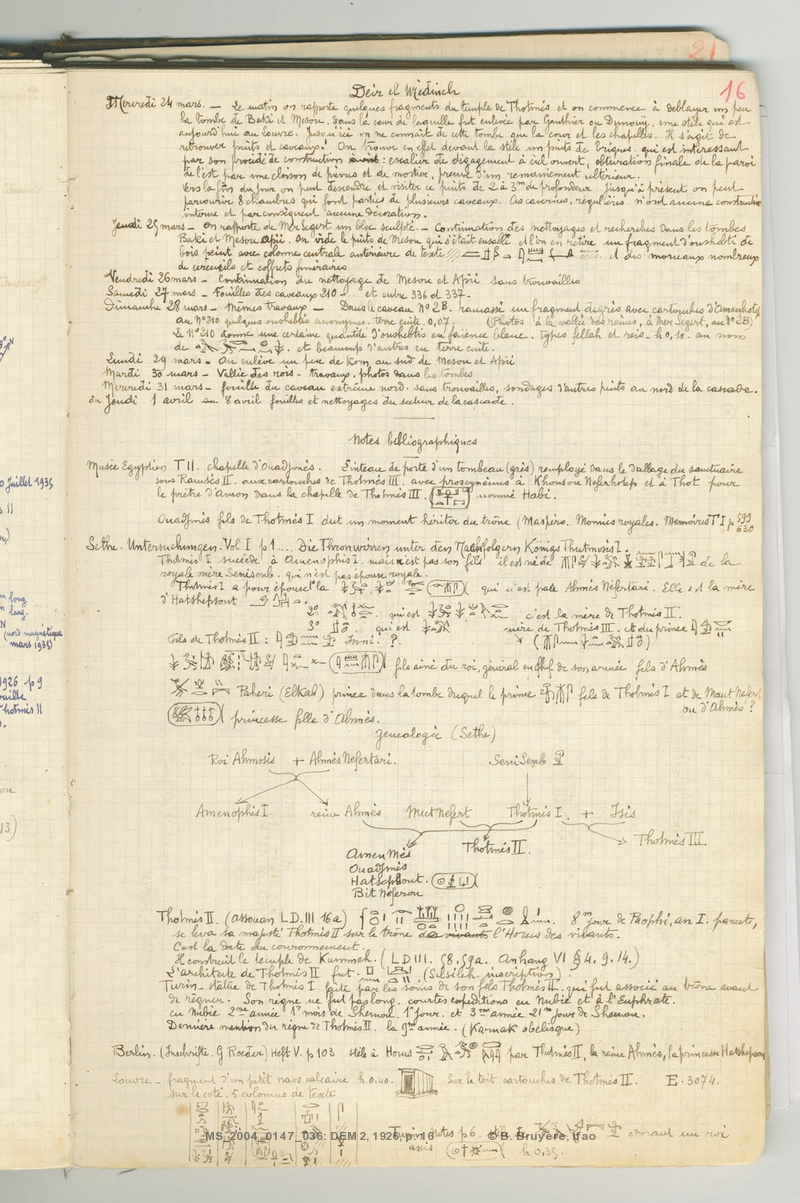 21
16
Deir el Médineh
Mercredi 24 mars. — Le matin on rapporte quelques fragments du temple de Thotmès et on commence à déblayer un peu
la tombe de Baki et Mesou, dans la cour de laquelle fut enlevée par Gauthier ou Dunouy, une stèle qui est
aujourd'hui au Louvre. Jusqu'ici on ne connait de cette tombe que la cour et les chapelles. Il s'agit de
retrouver puits et caveaux. On trouve en effet devant la stèle un puits de briques qui est intéressant
par son procédé de construction : escalier de dégagement à ciel ouvert, obturation finale de la paroi
de l'est par une cloison de pierres et de mortier, preuve d'un remaniement ultérieur.
Vers la fin du jour on peut descendre et visiter ce puits de 2 à 3m de profondeur. Jusqu'à présent on peut
parcourir 8 chambres qui font parties de plusieurs caveaux. Ces cavernes, régulières, n'ont aucune construction
interne et par conséquent aucune décoration.
Jeudi 25 mars — On rapporte de Mer Segert un bloc sculpté. — Continuation des nettoyages et recherches dans les tombes
Baki et Mesou Apii. On vide le puits de Mesou qui s'était ensablé et l'on en retire un fragment d'oushebti de
bois peint avec colonne centrale antérieure de texte et des morceaux nombreux
de cercueils et coffrets funéraires
Vendredi 26 mars — Continuation du nettoyage de Mesou et Apii sans trouvailles
Samedi 27 mars — Fouilles des caveaux 210 et entre 336 et 337.
Dimanche 28 mars — Mêmes travaux — Dans le caveau No 2B. ramassé un fragment de grès avec cartouches d'Amenhotep
au No 210 quelques oushebtis anonymes. terre cuite. 0,07. (Photos à la vallée des reines, à Mer Segert, au No 2B)
Le No 210 donne une certaine quantité d'oushebtis en faïence bleue. types fellah et reis. h 0,10. au nom
de et beaucoup d'autres en terre cuite.
Lundi 29 mars — On enlève un peu de Kom au sud de Mesou et Apii
Mardi 30 mars — Vallée des rois. travaux, photos dans les tombes
Mercredi 31 mars — fouille du caveau extrême nord. sans trouvailles, sondages d'autres puits au nord de la cascade.
du Jeudi 1 avril au 8 avril fouilles et nettoyages du secteur de la cascade.
Notes bibliographiques
Musée Egyptien T II. chapelle d'Ouadjmès. Linteau de porte d'un tombeau (grès) remployé dans le dallage du sanctuaire
sous Ramsès II. aux cartouches de Thotmès III. avec proscynèmes à Khonsou Neferhotep et à Thot pour
le prêtre d'Amon dans la chapelle de Thotmès III. nommé Habi.
Ouadjmès fils de Thotmès I dut un moment hériter du trône (Maspero. Momies royales. Memoires T I p 599
630
Sethe. Untersuchungen. Vol I p 1.... Die Thronwirren unter den Nachfolgern Königs Thutmosis I.
Thotmès I succède à Amenophis I. mais n'est pas son fils il est né de de la
royale mère Senisonb. qui n'est pas épouse royale.
Thotmès I a pour épouse 1° la qui n'est pas Ahmès Nefertari. Elle est la mère
d'Hatshepsout
2° qui est c'est la mère de Thotmès II.
3° qui est mère de Thotmès III. et du prince
Fils de Thotmès I : Inni. ?.
fils ainé du roi, général en chef de son armée fils d'Ahmès
Paheri (Elkab) prince dans la tombe duquel le prince fils de Thotmès I et de Mout Nefert
ou d'Ahmès ?
princesse fille d'Ahmès.
Genealogie (Sethe)
Roi Ahmosis + Ahmès Nefertari. Seni Senb
Amenophis I reine Ahmès Mut Nefert Thotmès I. + Isis
Thotmès II. Thotmès III.
Amen Mès
Ouadjmès
Hatshepsout.
Bit Neferou
Thotmès II. (Assouan LD. III 16a) 8me jour de Paophi, an I. parut,
se leva sa majesté Thotmès II sur le trône l'Horus des vivants.
C'est la date du couronnement.
Il construit le temple de Kummeh. (LD III. 58. 59a. Anhang VI § 4. 9. 14.)
L'architecte de Thotmès II fut. (Silsileh. inscription).
Turin. statue de Thotmès I faite par les soins de son fils Thotmès II. qui fut associé au trône avant
de régner. Son règne ne fut pas long. courtes expéditions en Nubie et à l'Euphrate.
en Nubie 2me année 1r mois de Shemou, 1r jour. et 3me année 21me jour de Shemou.
Dernière mention du règne de Thotmès II. la 9me année. (Karnak obelisque)
Berlin. (Inschrifte. G Roeder) Heft V. p 103 stèle à Horus par Thotmès II, la reine Ahmès, la princesse Hatshepsou
Louvre — fragment d'un petit naos calcaire h 0.40. Sur le toit cartouches de Thotmès II. E. 3074.
sur le coté. 5 colonnes de texte
p 6. adorant un roi
assis h 0,35.
MS_2004_0147_036: DEM 2, 1926, p. 16 © B. Bruyère, Ifao
Juillet 1935
long
larg.
(nord magnétique
mars 1935)
1926 p 9
Thotmès II
13)